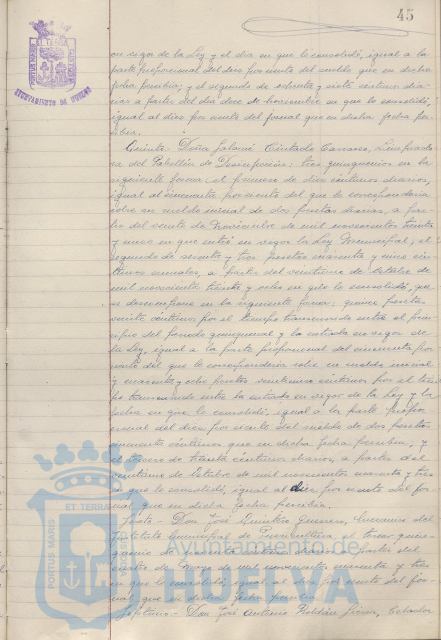 45
PORTUS MARIS ET TERRAE CUSTODIA
AYUNTAMIENTO DE HUELVA
en vigor de la Ley y el día en que lo consolidó, igual a la
parte proporcional del diez por ciento del sueldo que en dicha
fecha percibía; y el segundo de ochenta y siete céntimos dia-
rios a partir del día doce de noviembre en que lo consolidó,
igual al diez por ciento del jornal que en dicha fecha per-
cibía.
Quinto. Doña Salomé Cintado Carrasco, Limpiado-
ra del Pabellón de Desinfección: tres quinquenios en la
siguiente forma: el primero de diez céntimos diarios,
igual al cincuenta por ciento del que le correspondería
sobre un sueldo inicial de dos pesetas diarias, a par-
tir del veinte de Noviembre de mil novecientos treinta
y cinco en que entró en vigor la Ley Municipal; el
segundo de sesenta y tres pesetas cuarenta y cinco cén-
timos anuales, a partir del veintiuno de Octubre de
mil novecientos treinta y ocho en que lo consolidó, que
se descompone en la siguiente forma: quince pesetas
veinte céntimos por el tiempo transcurrido entre el prin-
cipio del periodo quinquenal y la entrada en vigor de
la Ley, igual a la parte proporcional del cincuenta por
ciento del que le correspondería sobre un sueldo inicial
y cuarenta y ocho pesetas veinticinco céntimos por el tiem-
po transcurrido entre la entrada en vigor de la Ley y la
fecha en que lo consolidó, igual a la parte propor-
cional del diez por ciento del sueldo de dos pesetas
cincuenta céntimos que en dicha fecha percibía, y
el tercero de treinta céntimos diarios, a partir del
veintiuno de Octubre de mil novecientos cuarenta y tres
en que lo consolidó, igual al diez por ciento del jor-
nal que en dicha fecha percibía.
Sexto.- Don José Guerrero,
Instituto Municipal de Puericultura: tercer quin-
quenio de a partir del
cuatro de Mayo de mil novecientos cuarenta y tres
en que lo consolidó, igual al diez por ciento del jor-
nal que en dicha fecha percibía.
Séptimo.- Don José Antonio Roldán Celador
PORTUS MARIS ET TERRAE
Ayuntamiento de
HUELVA